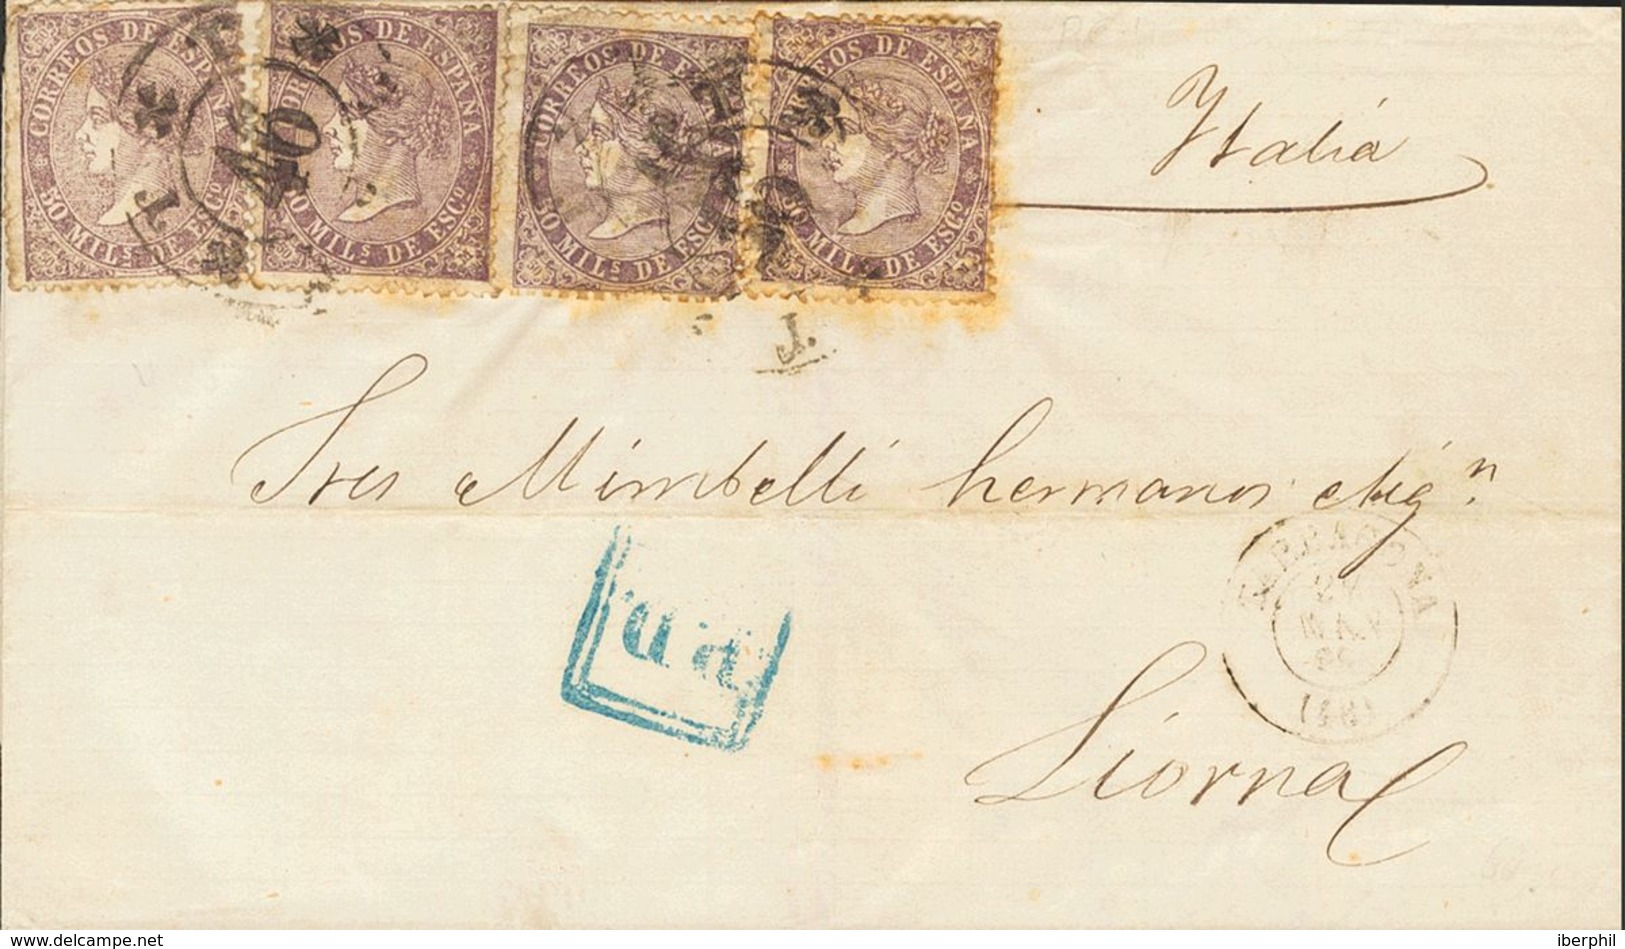 CORREOS DE ESPAÑA
50 MILS DE ESCO
CORREOS DE ESPAÑA
50 MILS DE ESCO
CORREOS DE ESPAÑA
50 MILS DE ESCO
CORREOS DE ESPAÑA
50 MILS DE ESCO
46
J.
J.
Italia
Sres Mimbelli hermanos
P.D.
TARRAGONA
(18)
Liorna
www.delcampe.net
iberphil